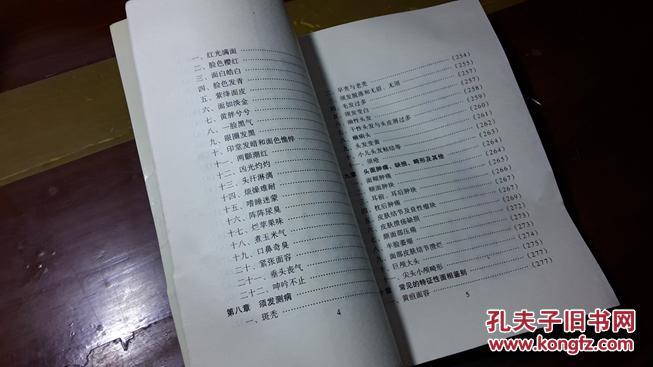 一、红光满面
二、脸色樱红
三、面白皓白
四、脸色发青
五、紫绛面皮
六、面如淡金
七、黄胖兮兮
八、一脸黑气
九、眼圈发黑
十、印堂发暗和面色憔悴
十一、两颧潮红
十二、凶光灼灼
十三、头汗淋漓
十四、烦燥难耐
十五、嗜睡迷蒙
十六、阵阵尿臭
十七、烂苹果味
十八、煮玉米气
十九、口鼻奇臭
二十、紧张面容
二十一、垂头丧气
二十二、呻吟不止
第八章 须发测病
一、斑秃
4
早秃与老秃 (254)
须发脱落和无眉、无须 (255)
毛发过多 (257)
须发变白 (257)
油性头发 (259)
干性头发与头皮屑过多 (260)
癞痢头 (261)
头发变黄 (262)
小儿头发粘结等 (262)
须疮 (263)
章 头面肿痛、缺损、畸形及其他 (264)
面颊肿痛 (264)
颊面肿块 (265)
耳前、耳后肿块 (266)
枕后肿痛
皮肤结节及良性瘤块
皮肤损伤缺损
颜面部压痛
半脸萎缩
面部皮肤结节溃烂 (274)
巨颅大头 (275)
一、尖头小颅畸形 (277)
章 常见的特征性面相鉴别 (277)
黄疸面容
5
孔夫子旧书网
www.kongfz.com